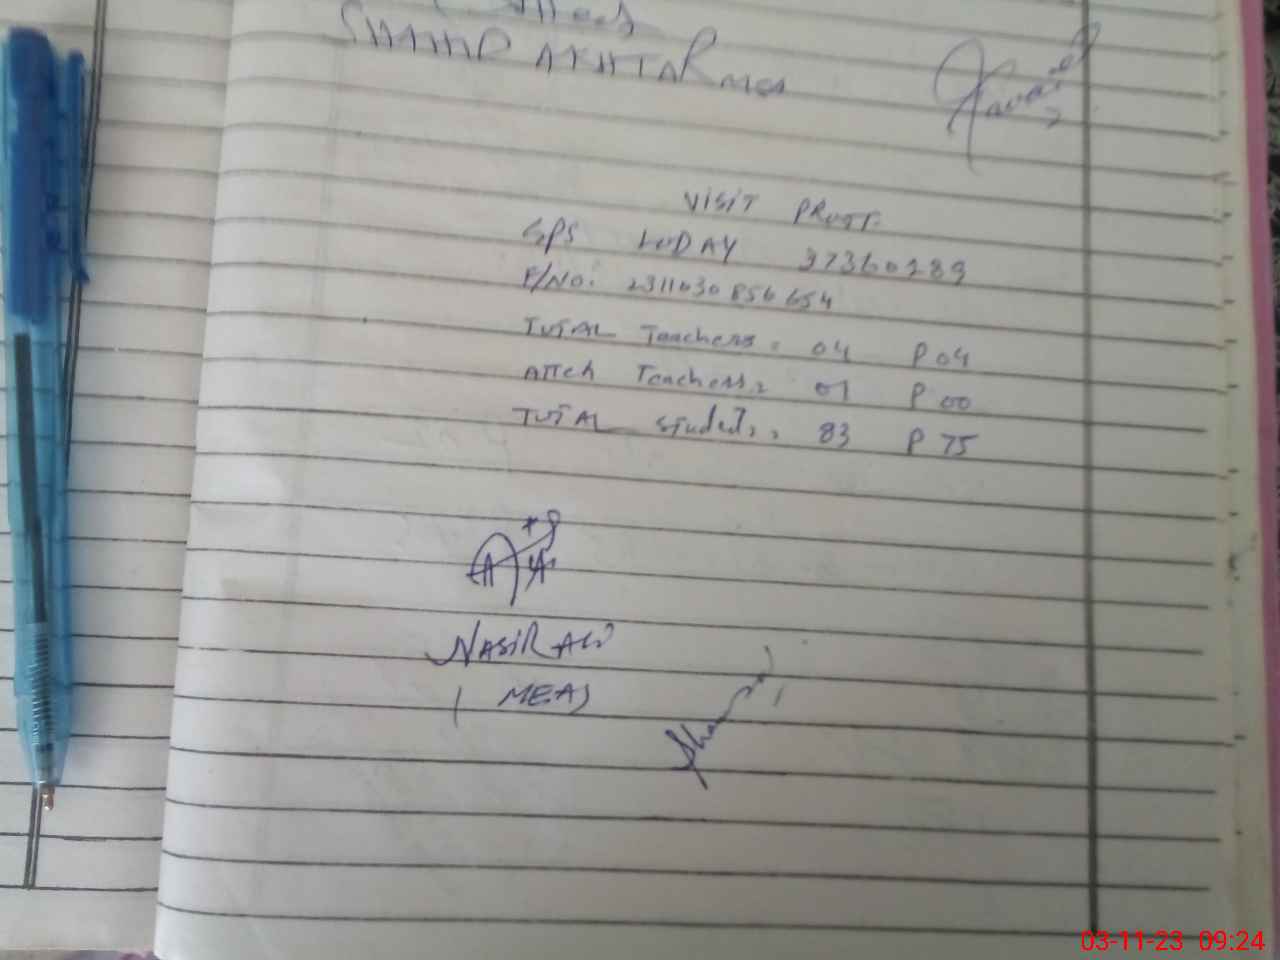 AKHTAR MEA
VISIT PROF.
GPS LUDAY 37360289
F/No: 2311030856654
TOTAL Teachers: 04 P 04
ATTch Teachers: 01 P 00
TOTAL students: 83 P 75
NASIR ALI
(MEA)
03-11-23 09:24